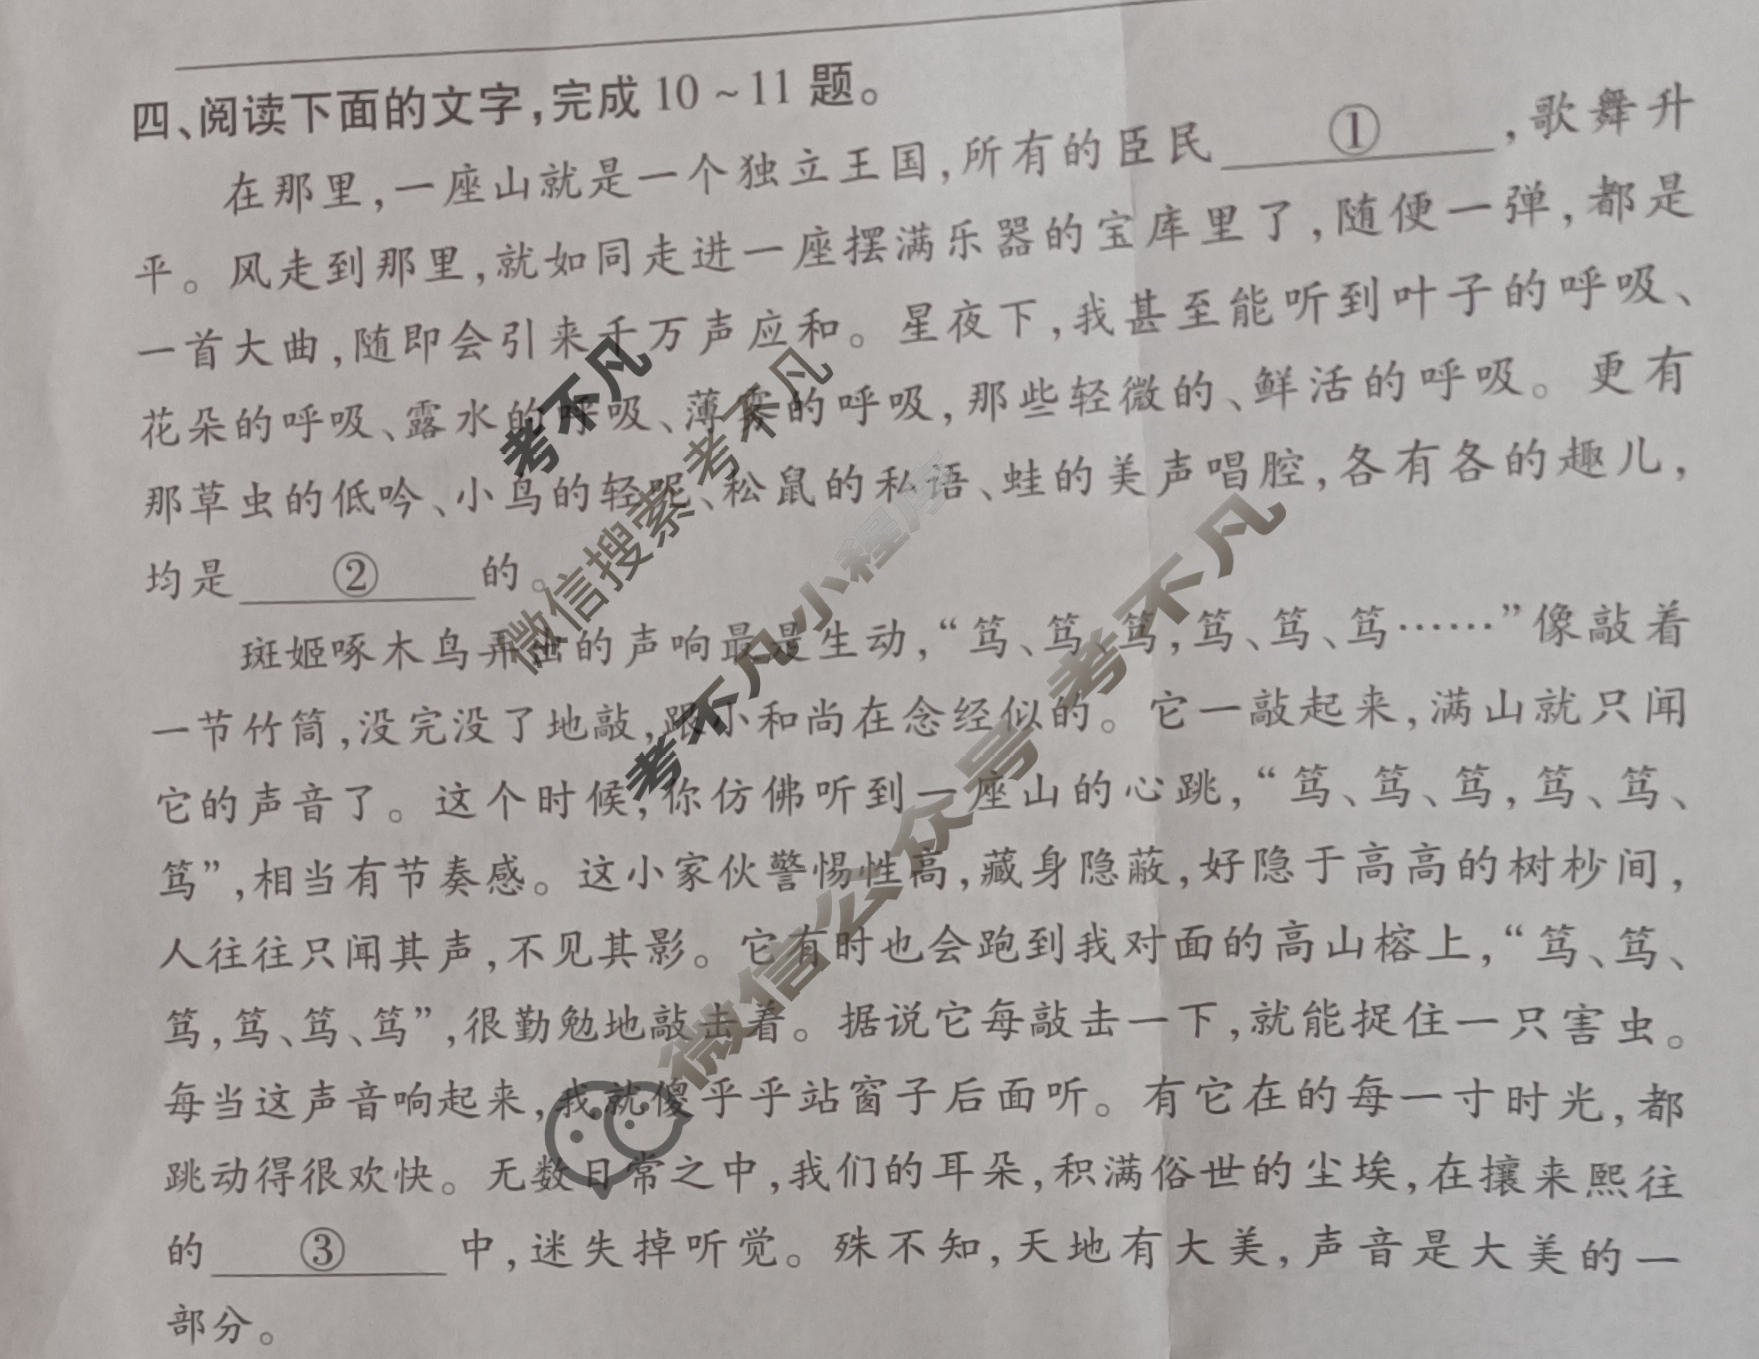 四、阅读下面的文字,完成10~11题。
在那里,一座山就是一个独立王国,所有的臣民①,歌舞升
平。风走到那里,就如同走进一座摆满乐器的宝库里了,随便一弹,都是
一首大曲,随即会引来千万声应和。星夜下,我甚至能听到叶子的呼吸、
花朵的呼吸、露水的呼吸、薄雾的呼吸,那些轻微的、鲜活的呼吸。更有
那草虫的低吟、小鸟的轻呢、松鼠的私语、蛙的美声唱腔,各有各的趣儿,
均是②的。
斑姬啄木鸟弄出的声响最是生动,“笃、笃、笃,笃、笃、笃……”像敲着
一节竹筒,没完没了地敲,跟小和尚在念经似的。它一敲起来,满山就只闻
它的声音了。这个时候,你仿佛听到一座山的心跳,“笃、笃、笃,笃、笃、
笃”,相当有节奏感。这小家伙警惕性高,藏身隐蔽,好隐于高高的树杪间,
人往往只闻其声,不见其影。它有时也会跑到我对面的高山榕上,“笃、笃、
笃,笃、笃、笃”,很勤勉地敲击着。据说它每敲击一下,就能捉住一只害虫。
每当这声音响起来,我就傻乎乎站窗子后面听。有它在的每一寸时光,都
跳动得很欢快。无数日常之中,我们的耳朵,积满俗世的尘埃,在攘来熙往
的③中,迷失掉听觉。殊不知,天地有大美,声音是大美的一
部分。
考不凡
微信搜索 考不凡
考不凡小程序
微信公众号 考不凡